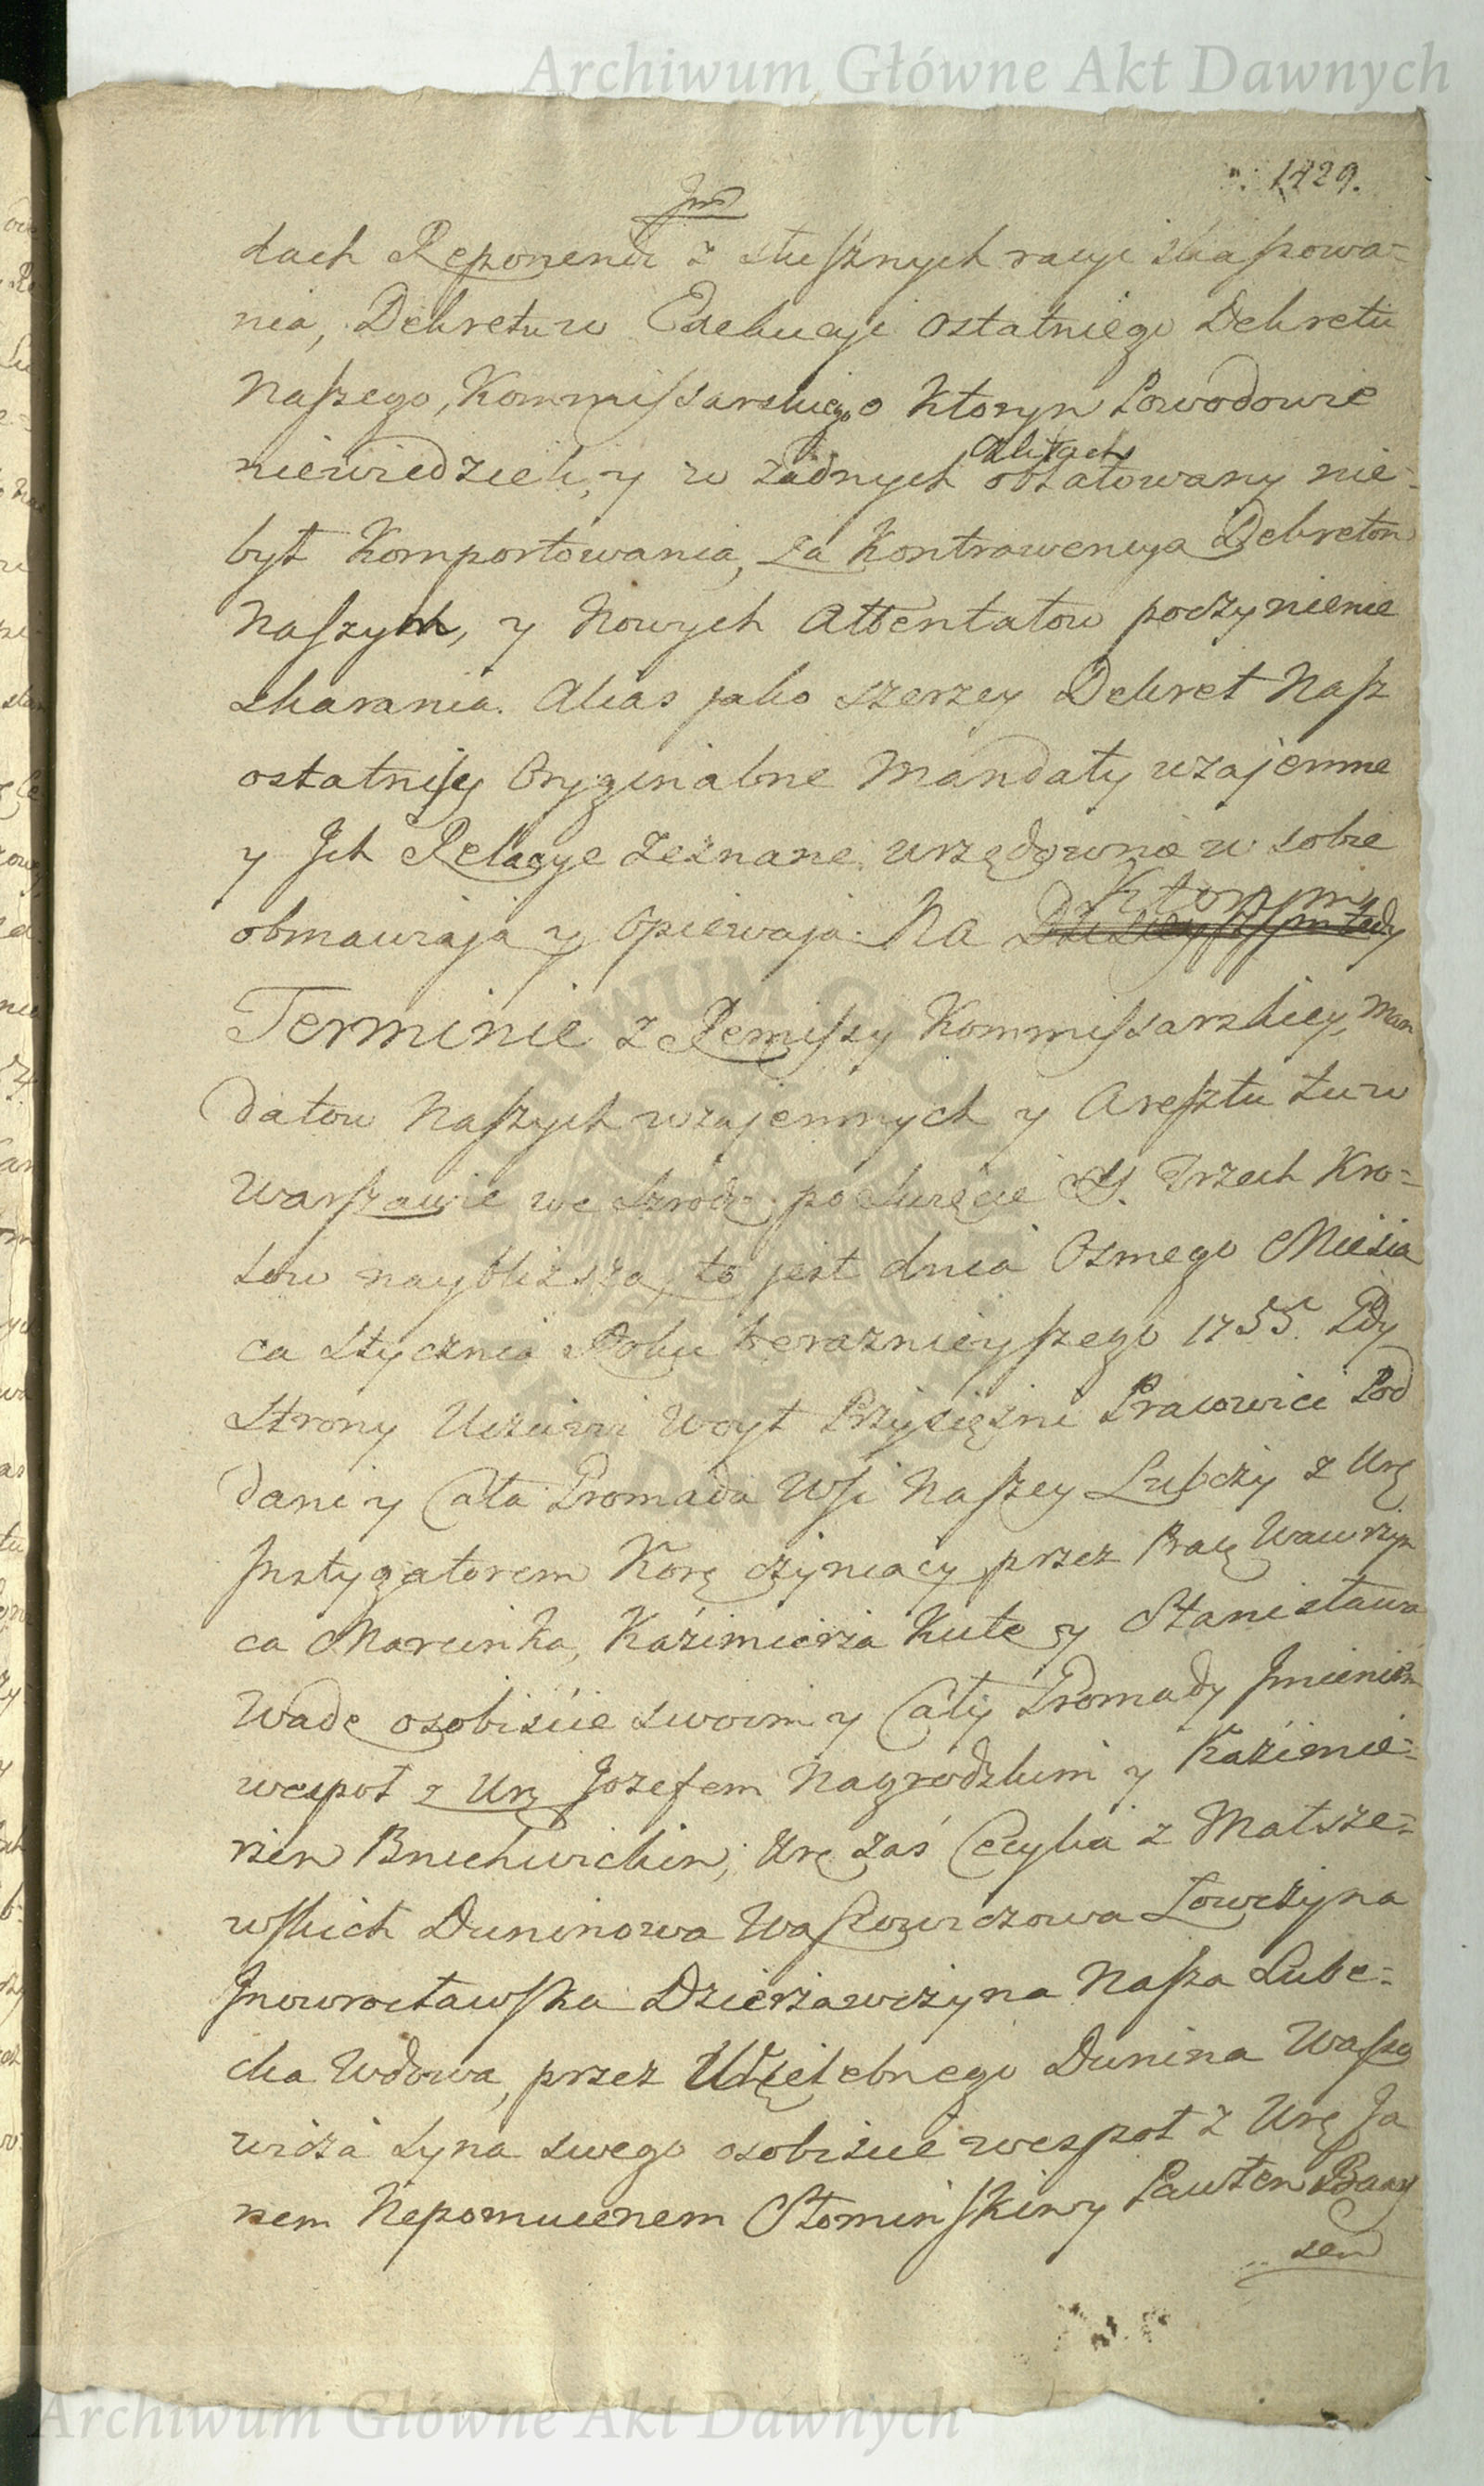 Archiwum Główne Akt Dawnych
1429.
dach Reponendi z słusznych racyi skassowa=
nia, Dekretu w Exekucyi ostatniego Dekretu
Naszego, Kommissarskiego o Ktorym Powodowie
niewiedzieli, y w żadnych Aktach oblatowany nie=
był Komportowania, za Kontrawencyą Dekretom
Naszym, y Nowych Attentatow poczynienie
skarania. Alias jako szerzey Dekret Nasz
ostatniey Oryginalne Mandaty wzajemne
y Jch Relacye zeznane urzędownie w sobie
obmawiaja y opiewaja. Na Ktorym
Terminie z Remissy Kommissarskiey, Man
datow Naszych wzajemnych y Aresztu tu w
Warszawie we Srodę po Święcie SS. Trzech Kro=
low naybliższą, to jest dnia Osmego Miesią
ca Stycznia Roku teraznieyszego 1755. Gdy
Strony Uczciwi Woyt Przysięzni Pracowici Pod
dani y Cała Gromada Wsi Naszey Lubczy z Urę
Jnstygatorem Korę czyniacy, przez Pracę Wawrzyn
ca Marcinka, Kazimierza Kutę y Stanisława
Wadę osobiscie swoim y Cały Gromady Jmieniem
wespoł z Urę Jozefem Nagrodzkim y Kazimie=
rzem Bruchwickim, Urę zaś Cecylia z Matsze=
wskich Duninowa Wąsowiczowa Łowczyna
Jnowrocławska Dzierżawczyna Nasza Lube=
cka Wdowa, przez Wielebnego Dunina Wąso
wicza Syna swego osobiscie wespoł z Urę Ja
nem Nepomucenem Słominskim y Pawłem Baay
sem
Archiwum Główne Akt Dawnych